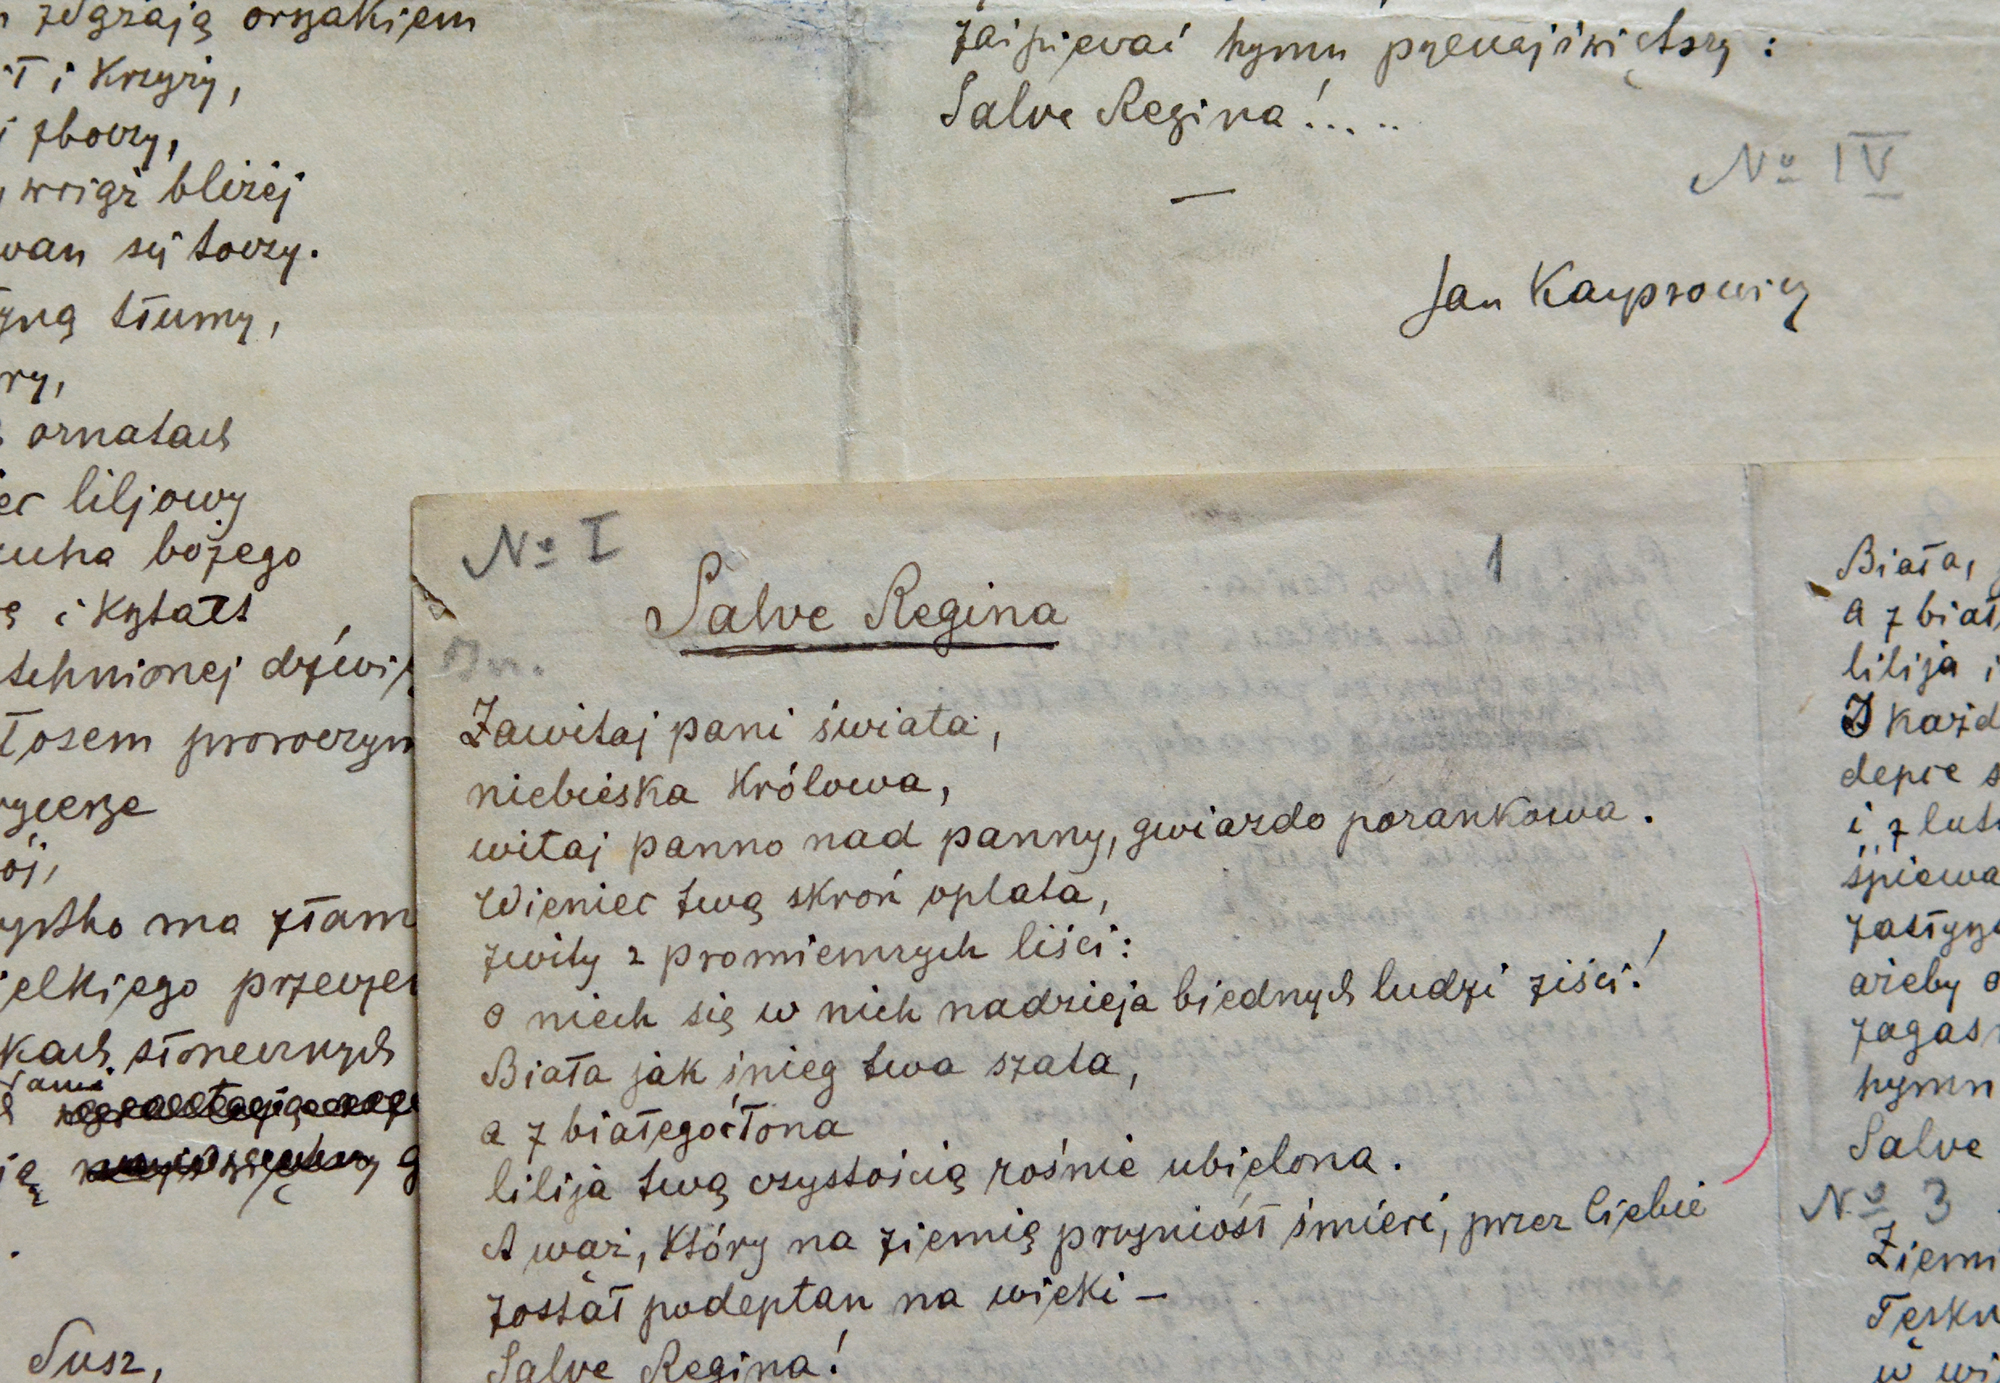 zdgrają orszakiem
i Krzyży,
zboczy,
wciąż bliżej
się toczy.
tłumy,
ornatach
liljowy
bożego
i Kształt
tchnionej
proroczym
ma złam
ielkiego
słonecznych
Susz,
zaśpiewać hymn przenajświętszy:
Salve Regina!.....
—
No IV
Jan Kasprowicz
No I
1
Salve Regina
Zawitaj pani świata,
niebieska Królowa,
witaj panno nad panny, gwiazdo porankowa.
Wieniec twą skroń oplata,
zwity z promiennych liści:
o niech się w nich nadzieja biednych ludzi ziści!
Biała jak śnieg twa szata,
a z białego łona
lilija twą czystością rośnie ubielona.
A wąż, który na ziemię przyniósł śmierć, przez Ciebie
został podeptan na wieki —
Salve Regina!
Biała,
a z biał
lilija i
Z każd
depce s
i z lut
śpiewa
zastyg
ażeby o
zagas
hymn
Salve
No 3
Ziemi
Tęskn
w wi